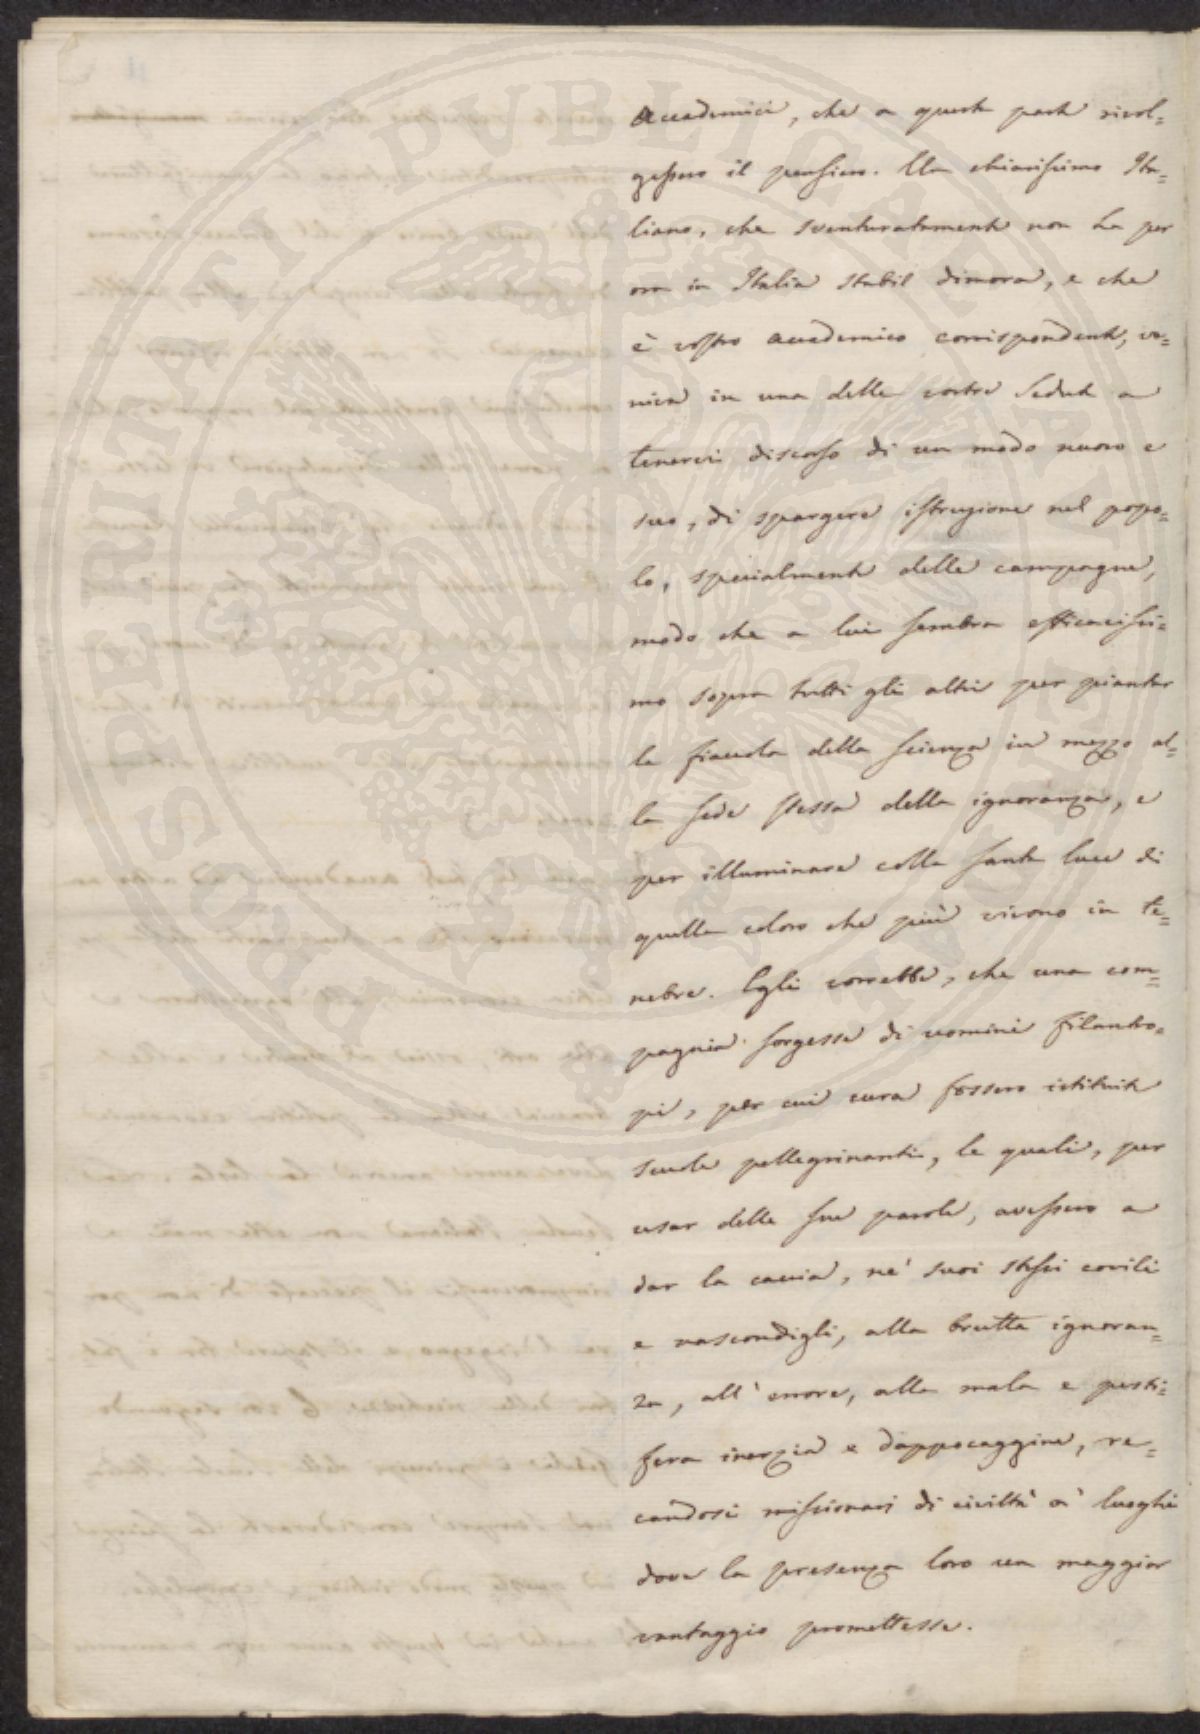 Accademici, che a questa parte rivol=
gessero il pensiero. Un chiarissimo Ita=
liano, che sventuratamente non ha per
ora in Italia stabil dimora, e che
è vostro accademico corrispondente, ve=
niva in una delle vostre sedute a
tenervi discorso di un modo nuovo e
suo, di spargere istruzione nel popo=
lo, specialmente delle campagne,
modo che a lui sembra efficacissi=
mo sopra tutti gli altri per piantar
la fiaccola della scienza in mezzo al=
la sede stessa della ignoranza, e
per illuminare colla santa luce di
quella coloro che più vivono in te=
nebre. Egli vorrebbe, che una com=
pagnia sorgesse di uomini filantro=
pi, per cui cura fossero istituite
scuole pellegrinanti, le quali, per
usar delle sue parole, avessero a
dar la caccia, ne' suoi stessi covili
e nascondigli, alla brutta ignoran=
za, all'errore, alla mala e pesti=
fera inerzia e dappocaggine, re=
candosi missionari di civiltà a' luoghi
dove la presenza loro un maggior
vantaggio promettesse.
PROSPERITATI PVBLICAE